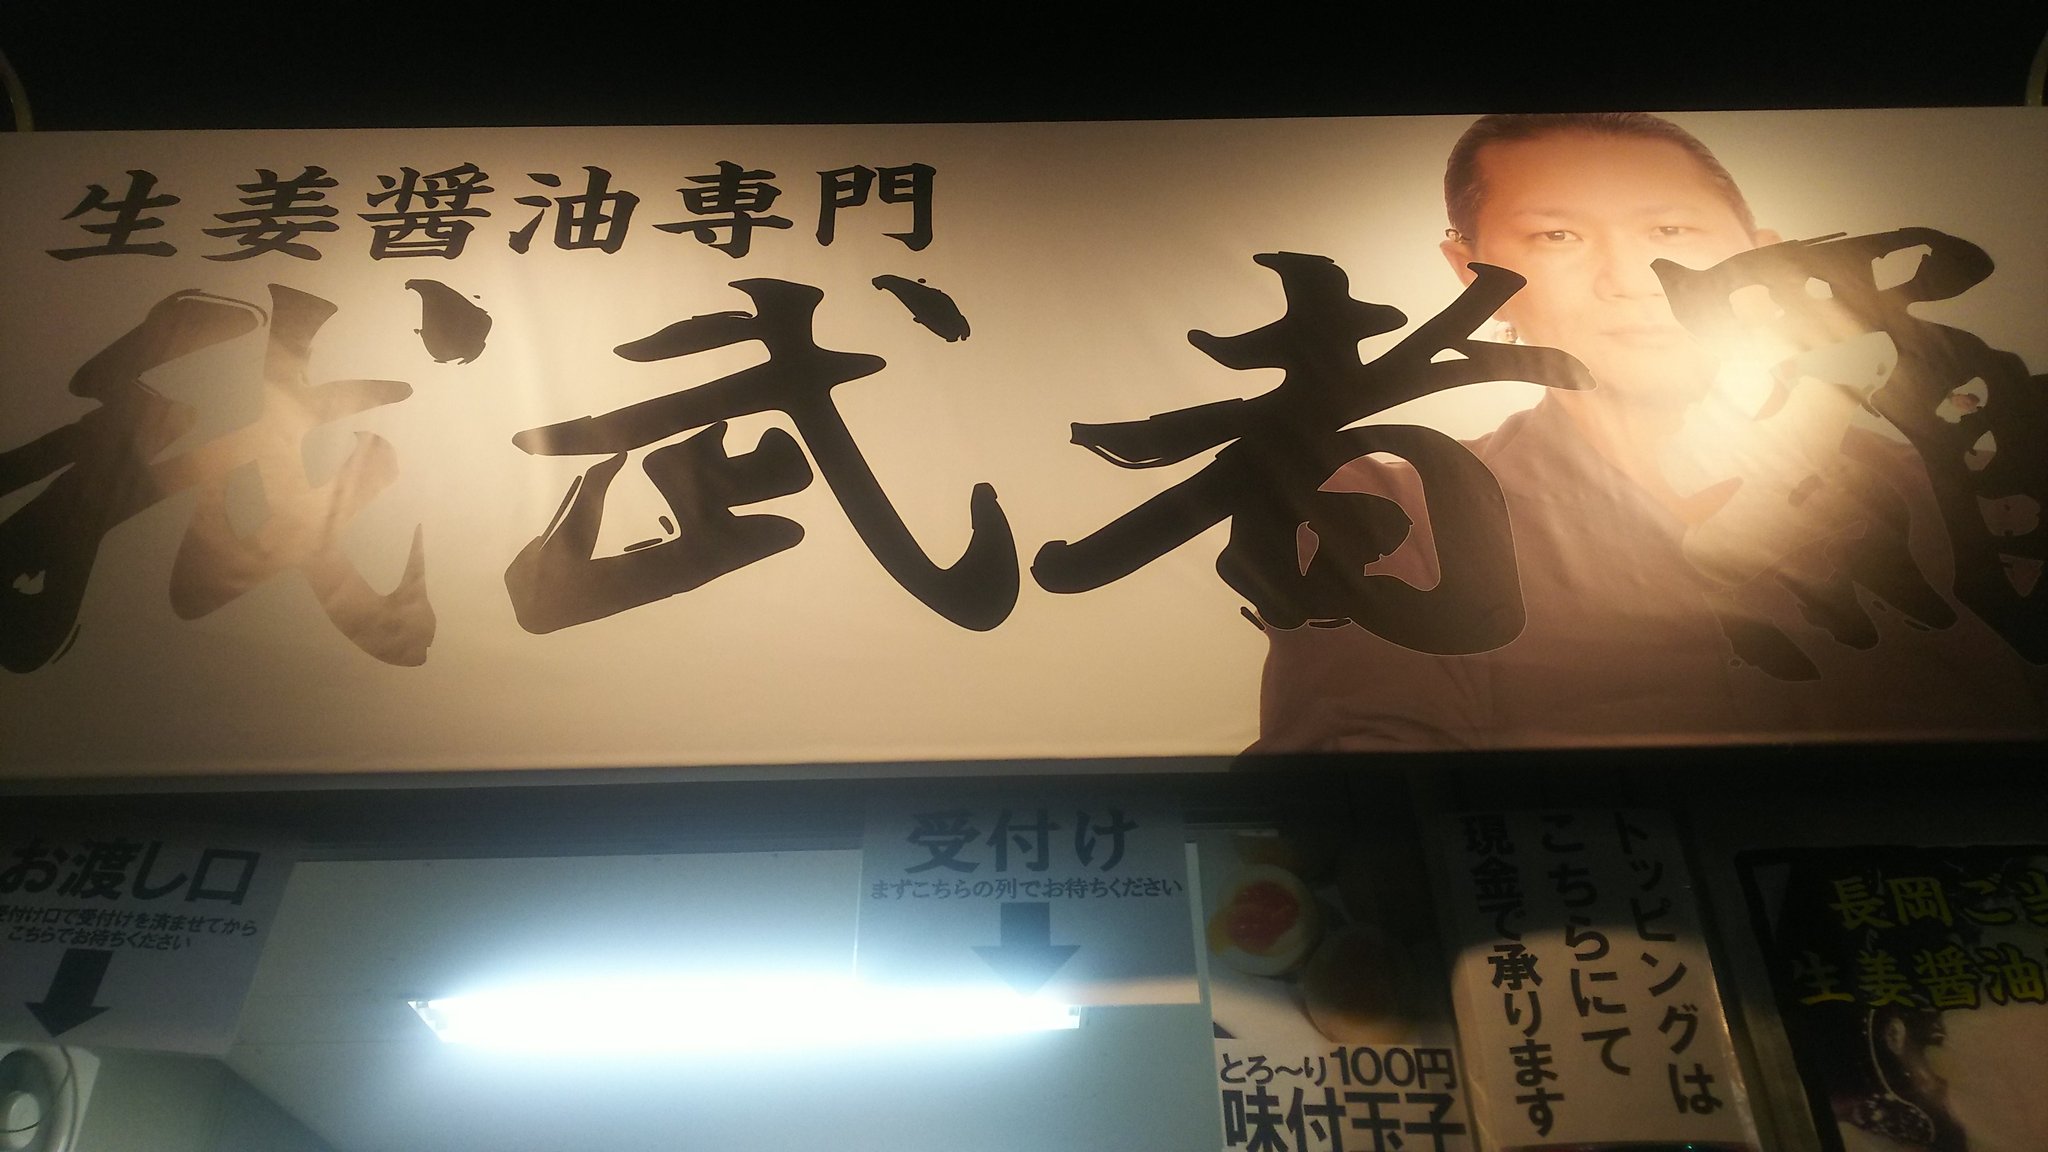 生姜醤油専門
我武者羅
お渡し口
受付け口で受付けを済ませてから
こちらでお待ちください
受付け
まずこちらの列でお待ちください
とろ～り100円
味付玉子
トッピングは
こちらにて
現金で承ります
長岡ご当
生姜醤油